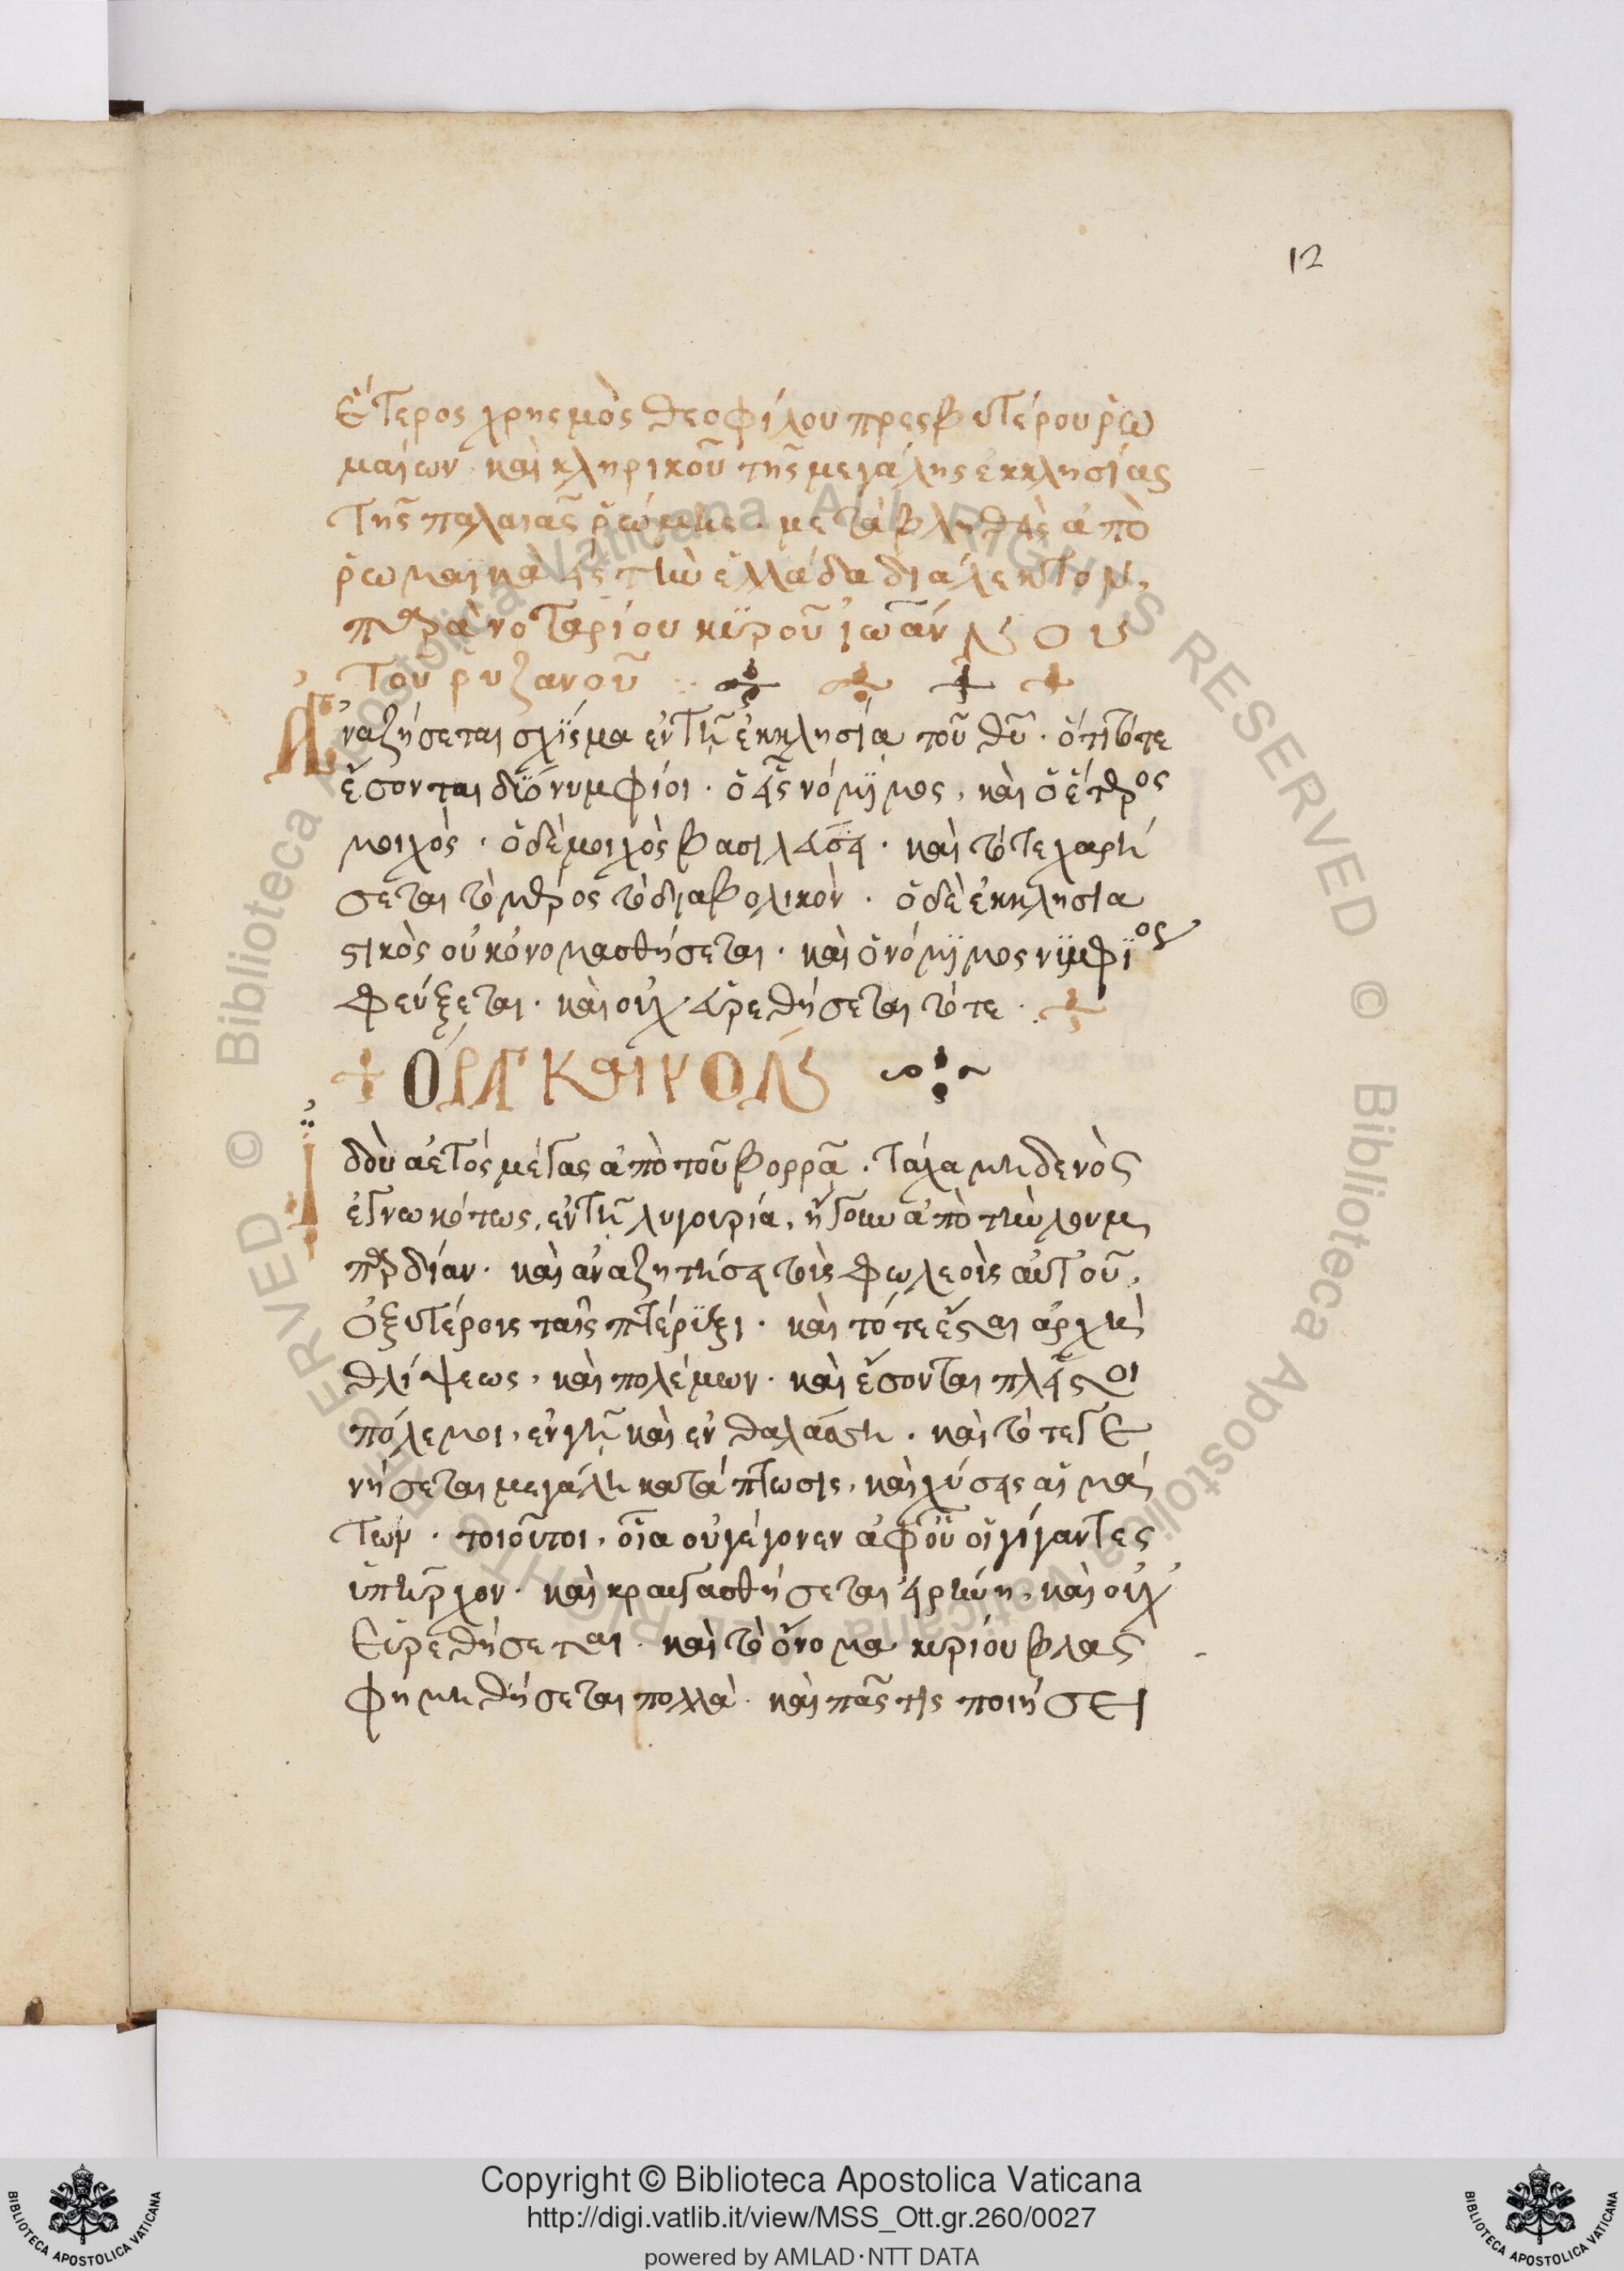 12
Ἕτερος χρησμὸς θεοφίλου πρεσβυτέρου ῥω
μαίων· καὶ κληρικοῦ τῆς μεγάλης ἐκκλησίας
τῆς παλαιᾶς ῥώμης · μεταβληθεὶς ἀπὸ
ῥωμαϊκὰ εἰς τὴν ἑλλάδα διάλεκτον,
παρὰ νοταρίου κυροῦ ἰωάννου
τοῦ ρυζανοῦ
Ἀναζήσεται σχίσμα ἐν τῇ ἐκκλησία τοῦ θῦ · ὅτι τότε
ἔσονται δύο νυμφίοι · ὁ εἷς νόμιμος, καὶ ὁ ἕτερος
μοιχὸς · ὁ δὲ μοιχὸς βασιλεύσει · καὶ τότε χαρή
σεται τὸ μέρος τὸ διαβολικὸν · ὁ δὲ ἐκκλησια
στικὸς οὐκ ὀνομασθήσεται · καὶ ὁ νόμιμος νυμφίος
φεύξεται · καὶ οὐχ εὑρεθήσεται τότε ·
ὉΡΑ ΚΑΙ
Ἰδοὺ ἀετὸς μέγας ἀπὸ τοῦ βορρᾶ · τάχα μηδενὸς
ἐγνωκότως, ἐν τῇ λυγουρία, ἤγουν ἀπὸ τὴν λουμ
παρδίαν · καὶ ἀναζητήσει τοὶς φωλεοὶς αὐτοῦ,
ὀξυτέροις ταῖς πτέρυξι · καὶ τότε ἔσται ἀρχὴ
θλίψεως, καὶ πολέμων · καὶ ἔσονται πλεῖστοι
πόλεμοι, ἐν γῇ καὶ ἐν θαλάσση · καὶ τότε γε
νήσεται μεγάλη κατάπτωσις, καὶ χύσεις αἱμά
των · τοιοῦτοι, οἷα οὐ γέγονεν ἀφ' οὗ οἱ γίγαντες
ὑπῆρχον · καὶ κραυγασθήσεται εἰρήνη, καὶ οὐχ
εὑρεθήσεται · καὶ τὸ ὄνομα κυρίου βλασ
φημηθήσεται πολλὰ · καὶ πᾶς τὶς ποιήσει
Copyright © Biblioteca Apostolica Vaticana
http://digi.vatlib.it/view/MSS_Ott.gr.260/0027
powered by AMLAD·NTT DATA
BIBLIOTECA APOSTOLICA VATICANA
BIBLIOTECA APOSTOLICA VATICANA
© Biblioteca Apostolica Vaticana ALL RIGHTS RESERVED © Biblioteca Apostolica Vaticana ALL RIGHTS RESERVED